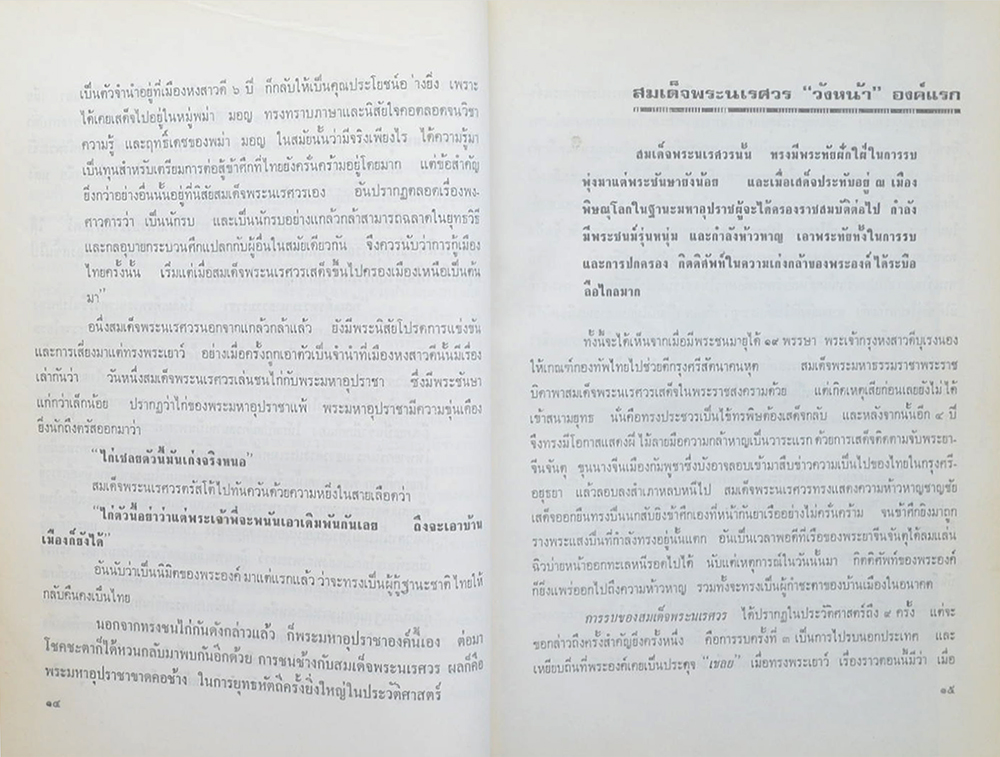 เป็นตัวจำนำอยู่ที่เมืองหงสาวดี ๖ ปี ก็กลับให้เป็นคุณประโยชน์อย่างยิ่ง เพราะ
ได้เคยเสด็จไปอยู่ในหมู่พม่า มอญ ทรงทราบภาษาและนิสัยใจคอตลอดจนวิชา
ความรู้ และฤทธิ์เดชของพม่า มอญ ในสมัยนั้นว่ามีจริงเพียงไร ได้ความรู้มา
เป็นทุนสำหรับเตรียมการต่อสู้ข้าศึกที่ไทยยังครั่นคร้ามอยู่โดยมาก แต่ข้อสำคัญ
ยิ่งกว่าอย่างอื่นนั้นอยู่ที่นิสัยสมเด็จพระนเรศวรเอง อันปรากฏตลอดเรื่องพง-
ศาวดารว่า เป็นนักรบ และเป็นนักรบอย่างแกล้วกล้าสามารถฉลาดในยุทธวิธี
และกลอุบายกระบวนศึกแปลกกับผู้อื่นในสมัยเดียวกัน จึงควรนับว่าการกู้เมือง
ไทยครั้งนั้น เริ่มแต่เมื่อสมเด็จพระนเรศวรเสด็จขึ้นไปครองเมืองเหนือเป็นต้น
มา"
อนึ่งสมเด็จพระนเรศวรนอกจากแกล้วกล้าแล้ว ยังมีพระนิสัยโปรดการแข่งขัน
และการเสี่ยงมาแต่ทรงพระเยาว์ อย่างเมื่อครั้งถูกเอาตัวเป็นจำนำที่เมืองหงสาวดีนั้นมีเรื่อง
เล่ากันว่า วันหนึ่งสมเด็จพระนเรศวรเล่นชนไก่กับพระมหาอุปราชา ซึ่งมีพระชันษา
แก่กว่าเล็กน้อย ปรากฏว่าไก่ของพระมหาอุปราชาแพ้ พระมหาอุปราชามีความขุ่นเคือง
ยิ่งนักถึงตรัสออกมาว่า
"ไก่เชลยตัวนี้มันเก่งจริงหนอ"
สมเด็จพระนเรศวรตรัสโต้ไปทันควันด้วยความหยิ่งในสายเลือดว่า
"ไก่ตัวนี้อย่าว่าแต่พระเจ้าพี่จะพนันเอาเดิมพันกันเลย ถึงจะเอาบ้าน
เมืองก็ยังได้"
อันนับว่าเป็นนิมิตของพระองค์ มาแต่แรกแล้ว ว่าจะทรงเป็นผู้กู้ฐานะชาติ ไทยให้
กลับคืนคงเป็นไทย
นอกจากทรงชนไก่กันดังกล่าวแล้ว ก็พระมหาอุปราชาองค์นี้เอง ต่อมา
โชคชะตาก็ได้หวนกลับมาพบกันอีกด้วย การชนช้างกับสมเด็จพระนเรศวร ผลก็คือ
พระมหาอุปราชาขาดคอช้าง ในการยุทธหัตถีครั้งยิ่งใหญ่ในประวัติศาสตร์
๑๔
สมเด็จพระนเรศวร "วังหน้า" องค์แรก
สมเด็จพระนเรศวรนั้น ทรงมีพระทัยฝักใฝ่ในการรบ
พุ่งมาแต่พระชันษายังน้อย และเมื่อเสด็จประทับอยู่ ณ เมือง
พิษณุโลกในฐานะมหาอุปราชผู้จะได้ครองราชสมบัติต่อไป กำลัง
มีพระชนม์รุ่นหนุ่ม และกำลังห้าวหาญ เอาพระทัยทั้งในการรบ
และการปกครอง กิตติศัพท์ในความเก่งกล้าของพระองค์ได้ระบือ
ลือไกลมาก
ทั้งนี้จะได้เห็นจากเมื่อมีพระชนมายุได้ ๑๙ พรรษา พระเจ้ากรุงหงสาวดีบุเรงนอง
ให้เกณฑ์กองทัพไทยไปช่วยตีกรุงศรีสัตนาคนหุต สมเด็จพระมหาธรรมราชาพระราช
บิดาพาสมเด็จพระนเรศวรเสด็จในพระราชสงครามด้วย แต่เกิดเหตุเสียก่อนเลยยังไม่ได้
เข้าสนามยุทธ นั่นคือทรงประชวรเป็นไข้ทรพิษต้องเสด็จกลับ และหลังจากนั้นอีก ๔ ปี
จึงทรงมีโอกาสแสดงฝีไม้ลายมือความกล้าหาญเป็นวาระแรก ด้วยการเสด็จติดตามจับพระยา-
จีนจันตุ ขุนนางจีนเมืองกัมพูชาซึ่งบังอาจลอบเข้ามาสืบข่าวความเป็นไปของไทยในกรุงศรี-
อยุธยา แล้วลอบลงสำเภาหลบหนีไป สมเด็จพระนเรศวรทรงแสดงความห้าวหาญชาญชัย
เสด็จออกยืนทรงปืนนกสับยิงข้าศึกเองที่หน้ากันยาเรืออย่างไม่ครั่นคร้าม จนข้าศึกยิงมาถูก
รางพระแสงปืนที่กำลังทรงอยู่นั้นแตก อันเป็นเวลาพอดีที่เรือของพระยาจีนจันตุได้ลมแล่น
ฉิวบ่ายหน้าออกทะเลหนีรอดไปได้ นับแต่เหตุการณ์ในวันนั้นมา กิตติศัพท์ของพระองค์
ก็ยิ่งแพร่ออกไปถึงความห้าวหาญ รวมทั้งจะทรงเป็นผู้กำชะตาของบ้านเมืองในอนาคต
การรบของสมเด็จพระนเรศวร ได้ปรากฏในประวัติศาสตร์ถึง ๙ ครั้ง แต่จะ
ขอกล่าวถึงครั้งสำคัญยิ่งครั้งหนึ่ง คือการรบครั้งที่ ๓ เป็นการไปรบนอกประเทศ และ
เหยียบถิ่นที่พระองค์เคยเป็นประดุจ "เชลย" เมื่อทรงพระเยาว์ เรื่องราวตอนนี้มีว่า เมื่อ
๑๕